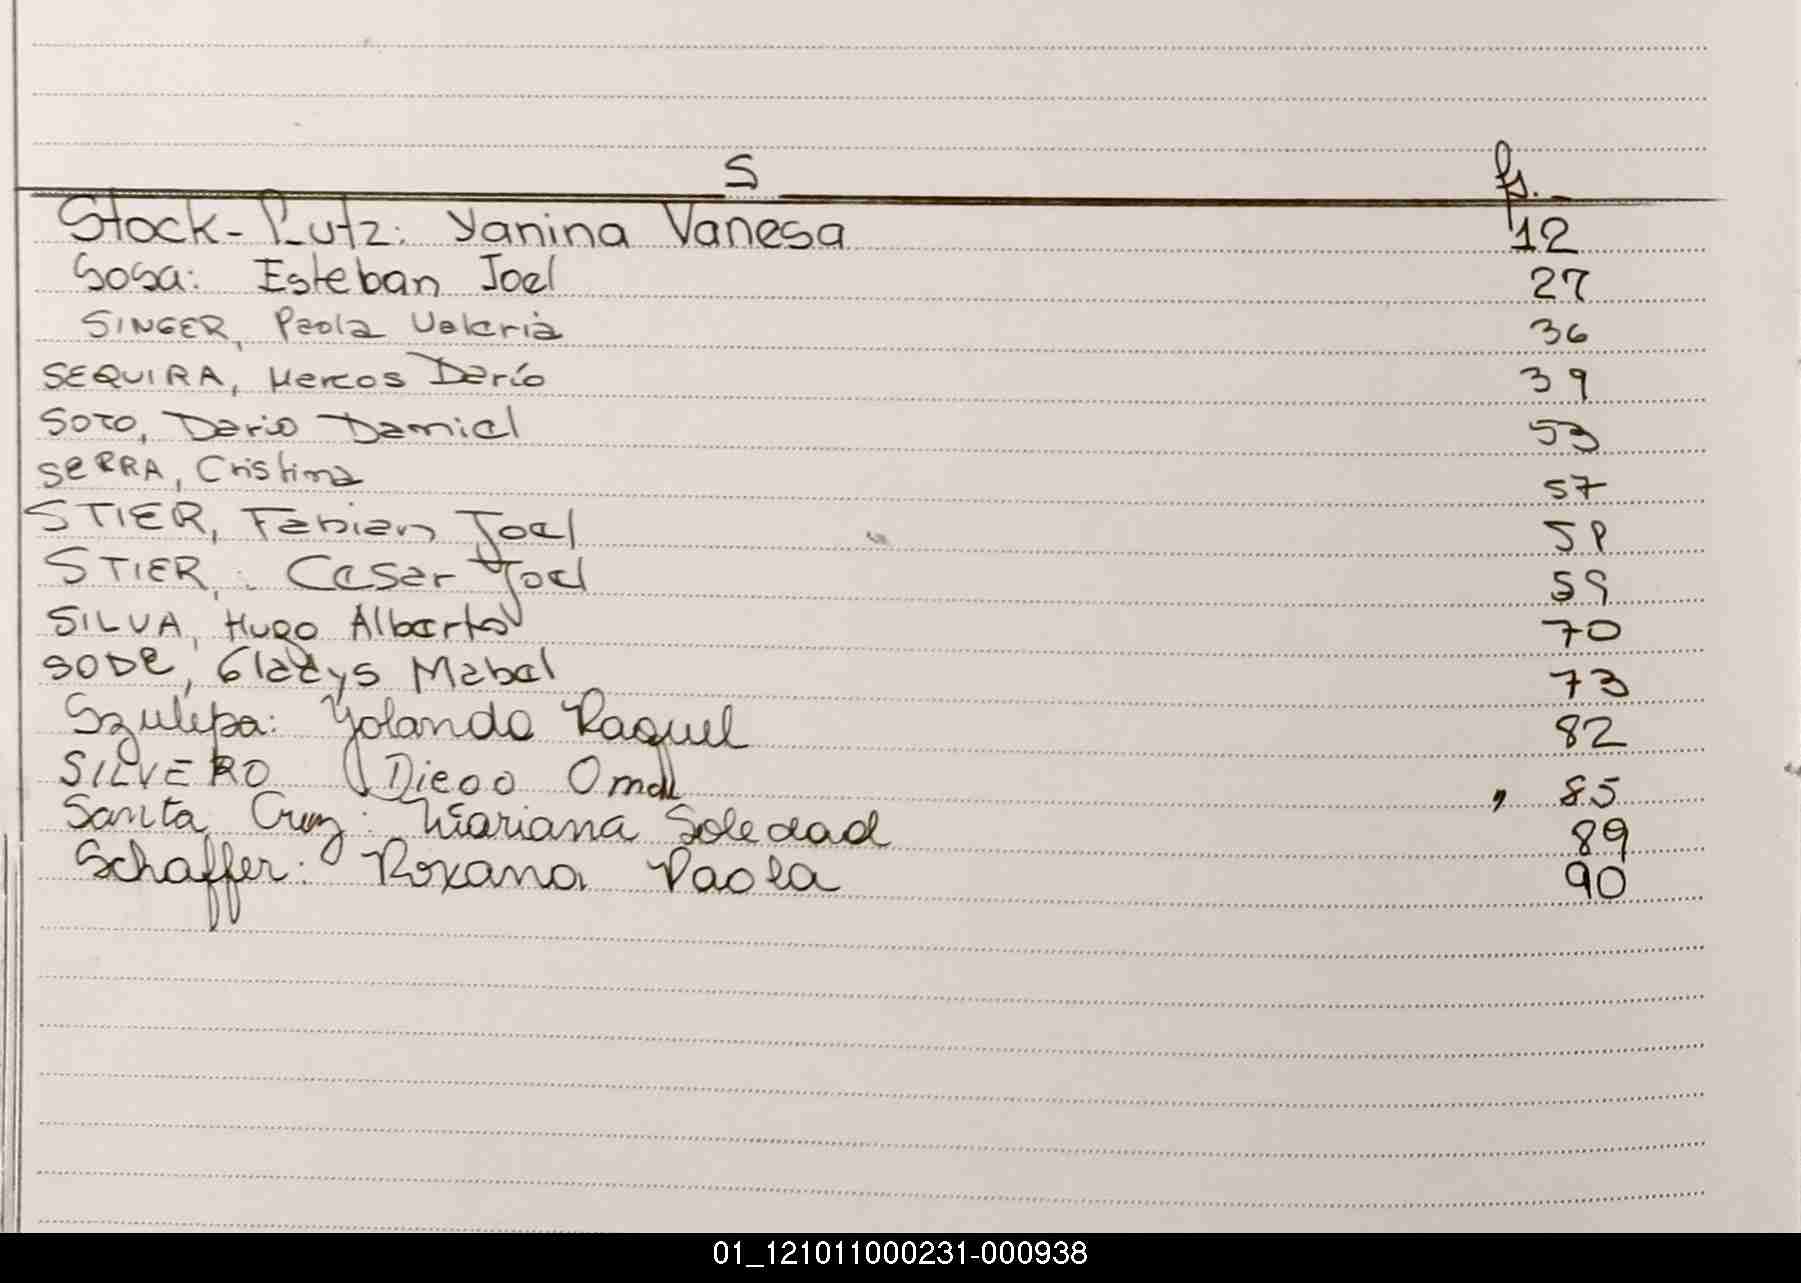 S fs.
Stock - Lutz: Yanina Vanesa 12
Sosa: Esteban Joel 27
SINGER, Paola Valeria 36
SEQUIRA, Marcos Darío 39
SOTO, Dario Daniel 53
SERRA, Cristina 57
STIER, Fabian Joel 58
STIER, : Cesar Joel 59
SILVA, Hugo Alberto 70
SODE, Gladys Mabel 73
Szulepa: Yolanda Raquel 82
SILVERO Diego Omar 85
Santa Cruz: Mariana Soledad 89
Schaffer: Roxana Paola 90
01_121011000231-000938